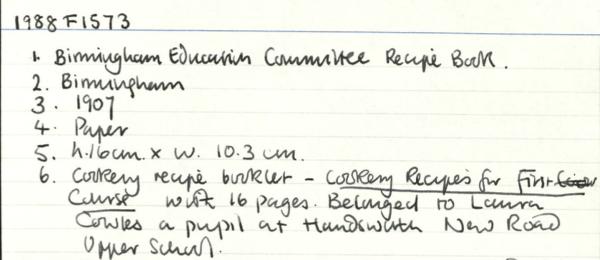 1988 F1573
1. Birmingham Education Committee Recipe Book.
2. Birmingham
3. 1907
4. Paper
5. h.16cm. x w. 10.3 cm.
6. Cookery recipe booklet - Cookery Recipes for First
Course with 16 pages. Belonged to Laura
Cowles a pupil at Handsworth New Road
Upper School.